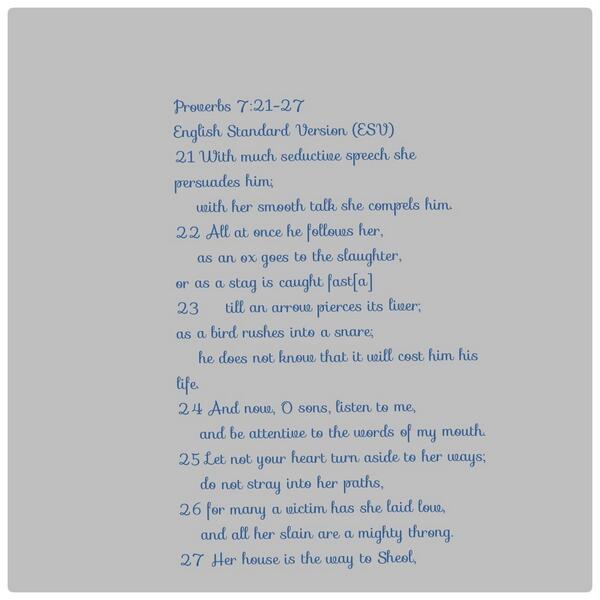 Proverbs 7:21-27
English Standard Version (ESV)
21 With much seductive speech she
persuades him;
with her smooth talk she compels him.
22 All at once he follows her,
as an ox goes to the slaughter,
or as a stag is caught fast[a]
23 till an arrow pierces its liver;
as a bird rushes into a snare;
he does not know that it will cost him his
life.
24 And now, O sons, listen to me,
and be attentive to the words of my mouth.
25 Let not your heart turn aside to her ways;
do not stray into her paths,
26 for many a victim has she laid low,
and all her slain are a mighty throng.
27 Her house is the way to Sheol,